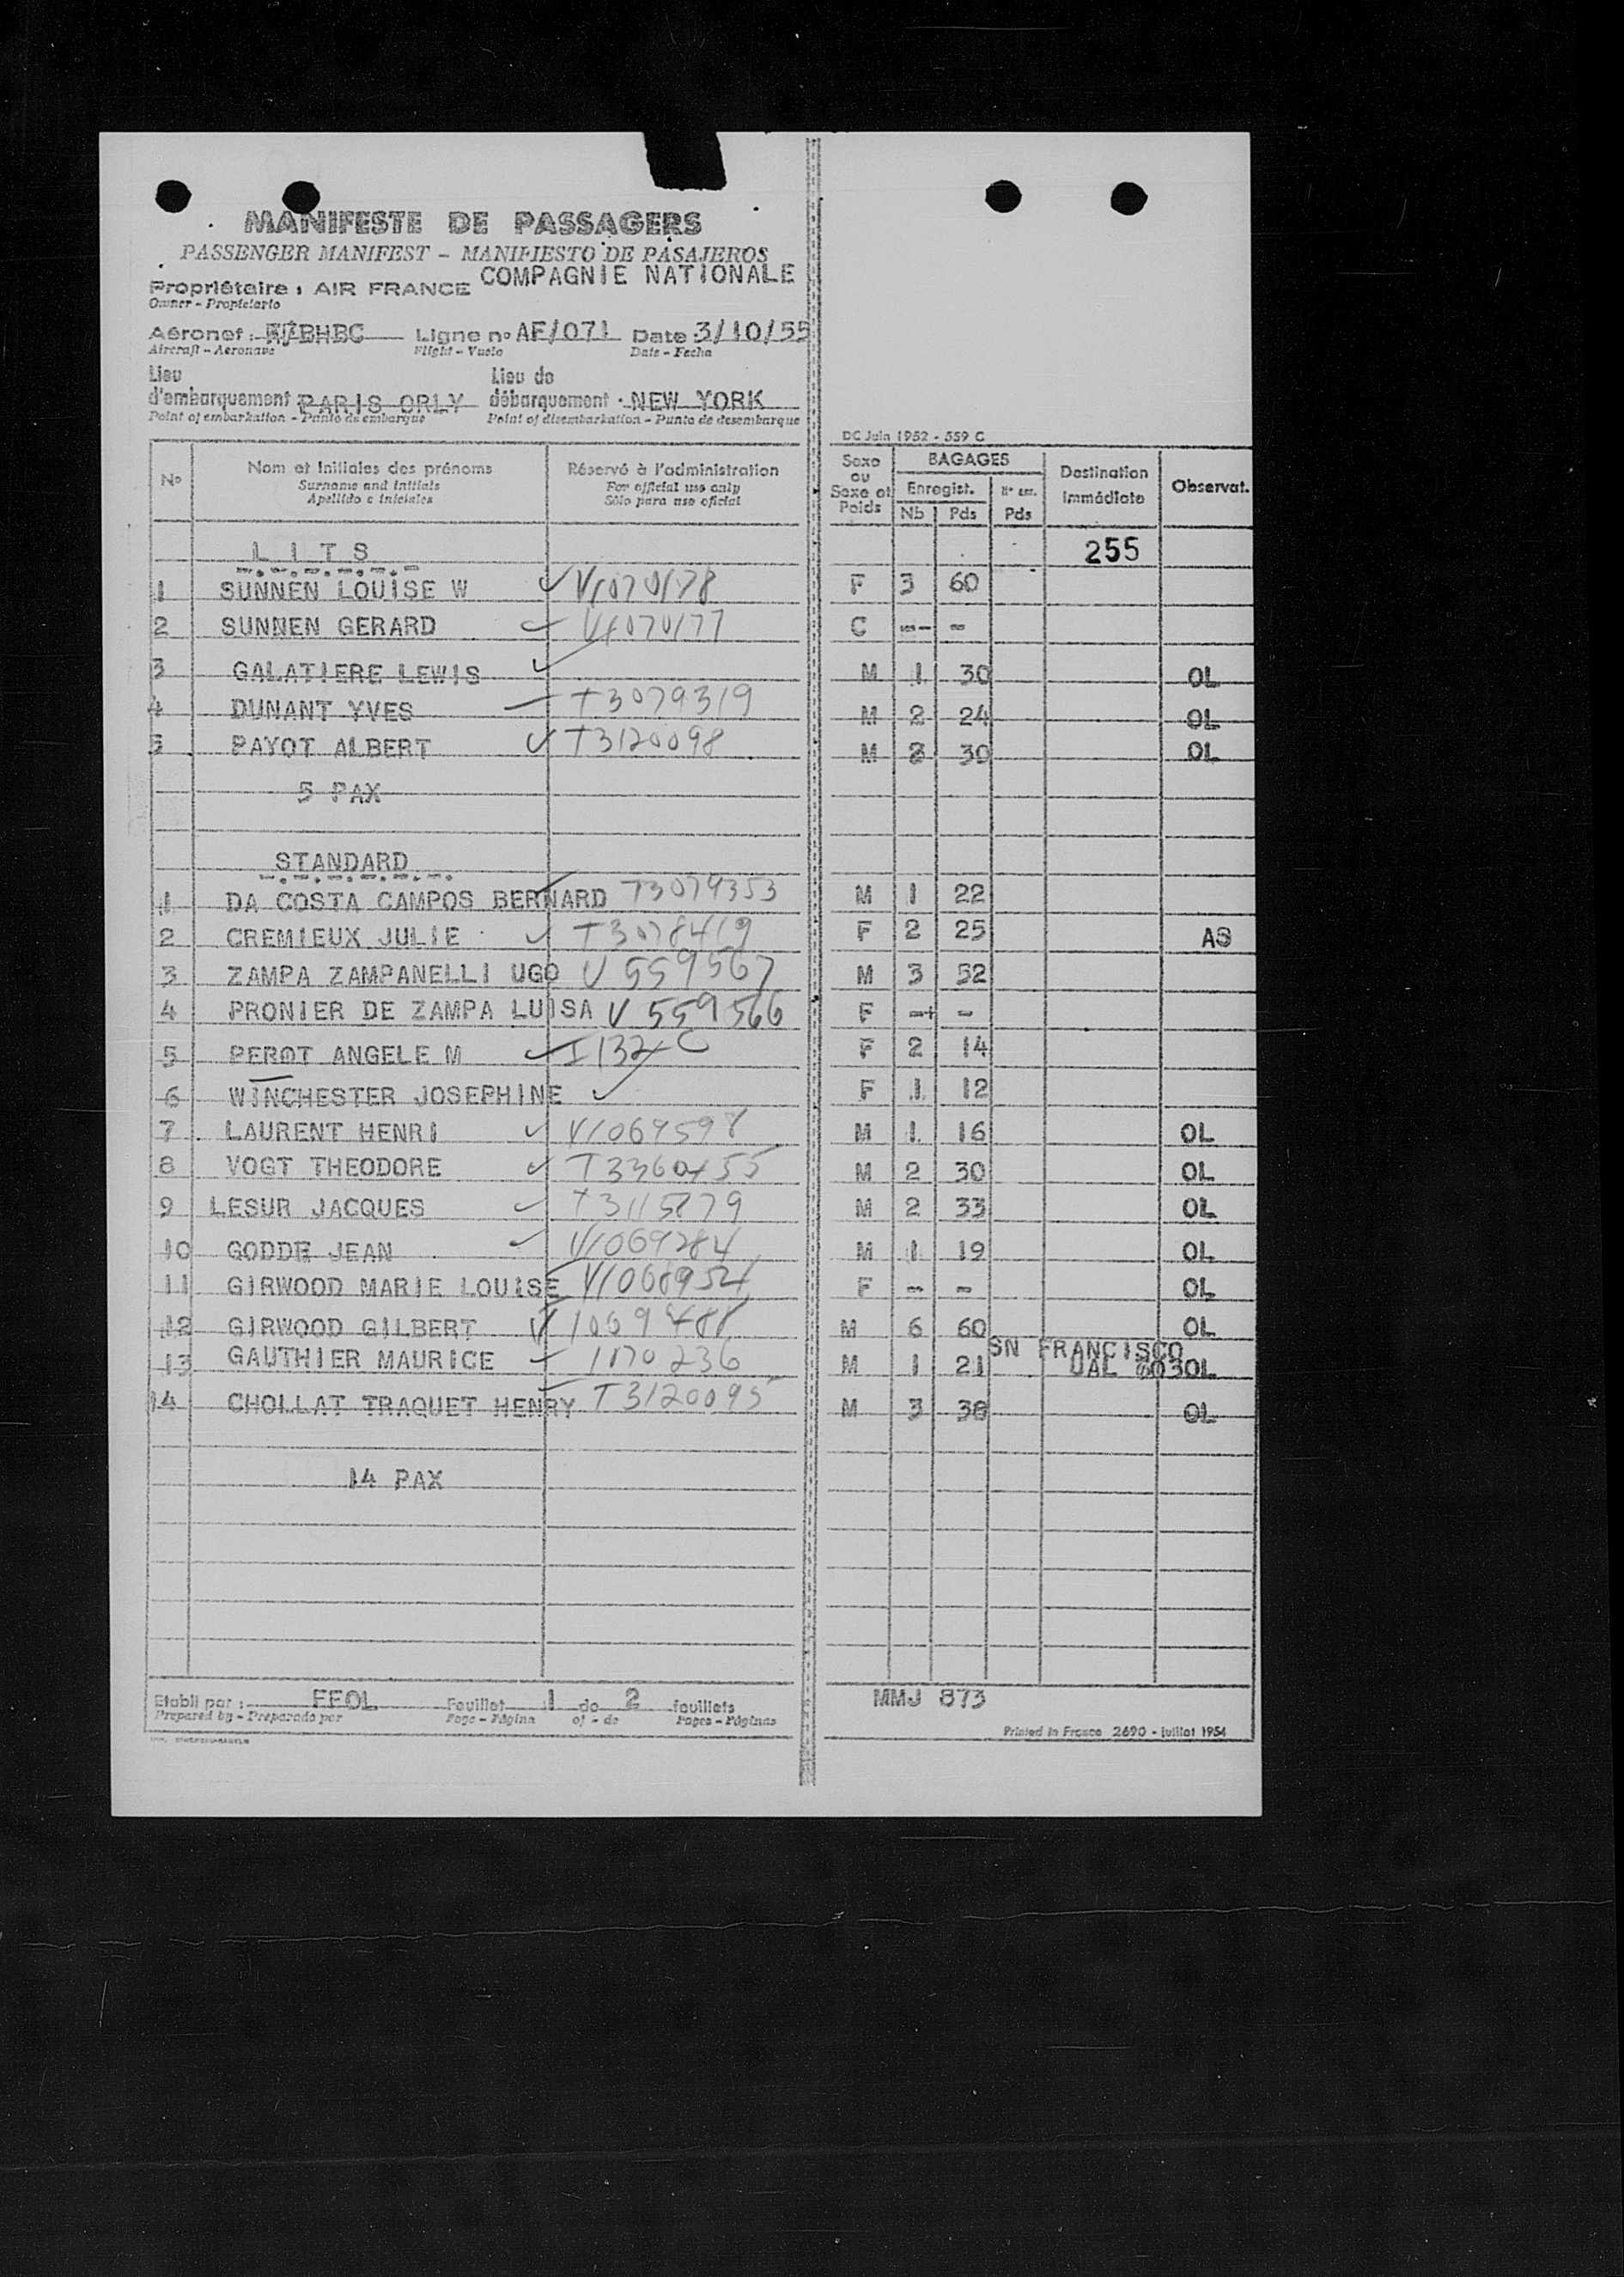 MANIFESTE DE PASSAGERS
PASSENGER MANIFEST - MANIFIESTO DE PASAJEROS
COMPAGNIE NATIONALE
Propriétaire : AIR FRANCE
Owner - Propietario
Aéronef : BHBC Ligne n° AF/071 Date 3/10/55
Aircraft - Aeronave Flight - Vuelo Date - Fecha
Lieu d'embarquement PARIS ORLY Lieu de débarquement NEW YORK
Point of embarkation - Punto de embarque Point of disembarkation - Punto de desembarque
DC Juin 1952 - 559 C
N° Nom et Initiales des prénoms Réservé à l'administration Sexe ou Sexe et Poids BAGAGES Destination immédiate Observat.
Surname and initials For official use only Enregist. N° enr.
Apellido e iniciales Sólo para uso oficial Nb Pds Pds
LITS 255
1 SUNNEN LOUISE W V1070178 F 3 60
2 SUNNEN GERARD V1070177 C -- -
3 GALATIERE LEWIS M 1 30 OL
4 DUNANT YVES T3079319 M 2 24 OL
5 PAYOT ALBERT T3120098 M 2 30 OL
5 PAX
STANDARD
1 DA COSTA CAMPOS BERNARD T3079353 M 1 22
2 CREMIEUX JULIE T3078419 F 2 25 AS
3 ZAMPA ZAMPANELLI UGO V 559567 M 3 52
4 PRONIER DE ZAMPA LUISA V 559566 F -- -
5 PEROT ANGELE M F 2 14
6 WINCHESTER JOSEPHINE F 1 12
7 LAURENT HENRI V1069598 M 1 16 OL
8 VOGT THEODORE M 2 30 OL
9 LESUR JACQUES T3115879 M 2 33 OL
10 GODDE JEAN V1069284 M 1 19 OL
11 GIRWOOD MARIE LOUISE V1068954 F - - OL
12 GIRWOOD GILBERT V1069488 M 6 60 OL
13 GAUTHIER MAURICE 1170236 M 1 21 SN FRANCISCO
UAL OL
14 CHOLLAT TRAQUET HENRY T3120095 M 3 38 OL
14 PAX
Etabli par : FFOL Feuillet 1 de 2 feuillets MMJ 873
Prepared by - Preparado por Page - Página of - de Pages - Páginas
Printed in France 2690 - juillet 1954